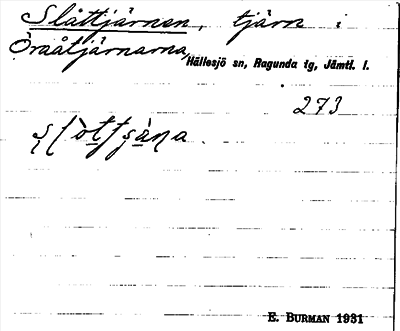 Slåttjärnen, tjärn i
Öraåtjärnarna, Hällesjö sn, Ragunda tg, Jämtl. l.
273
E. BURMAN 1931